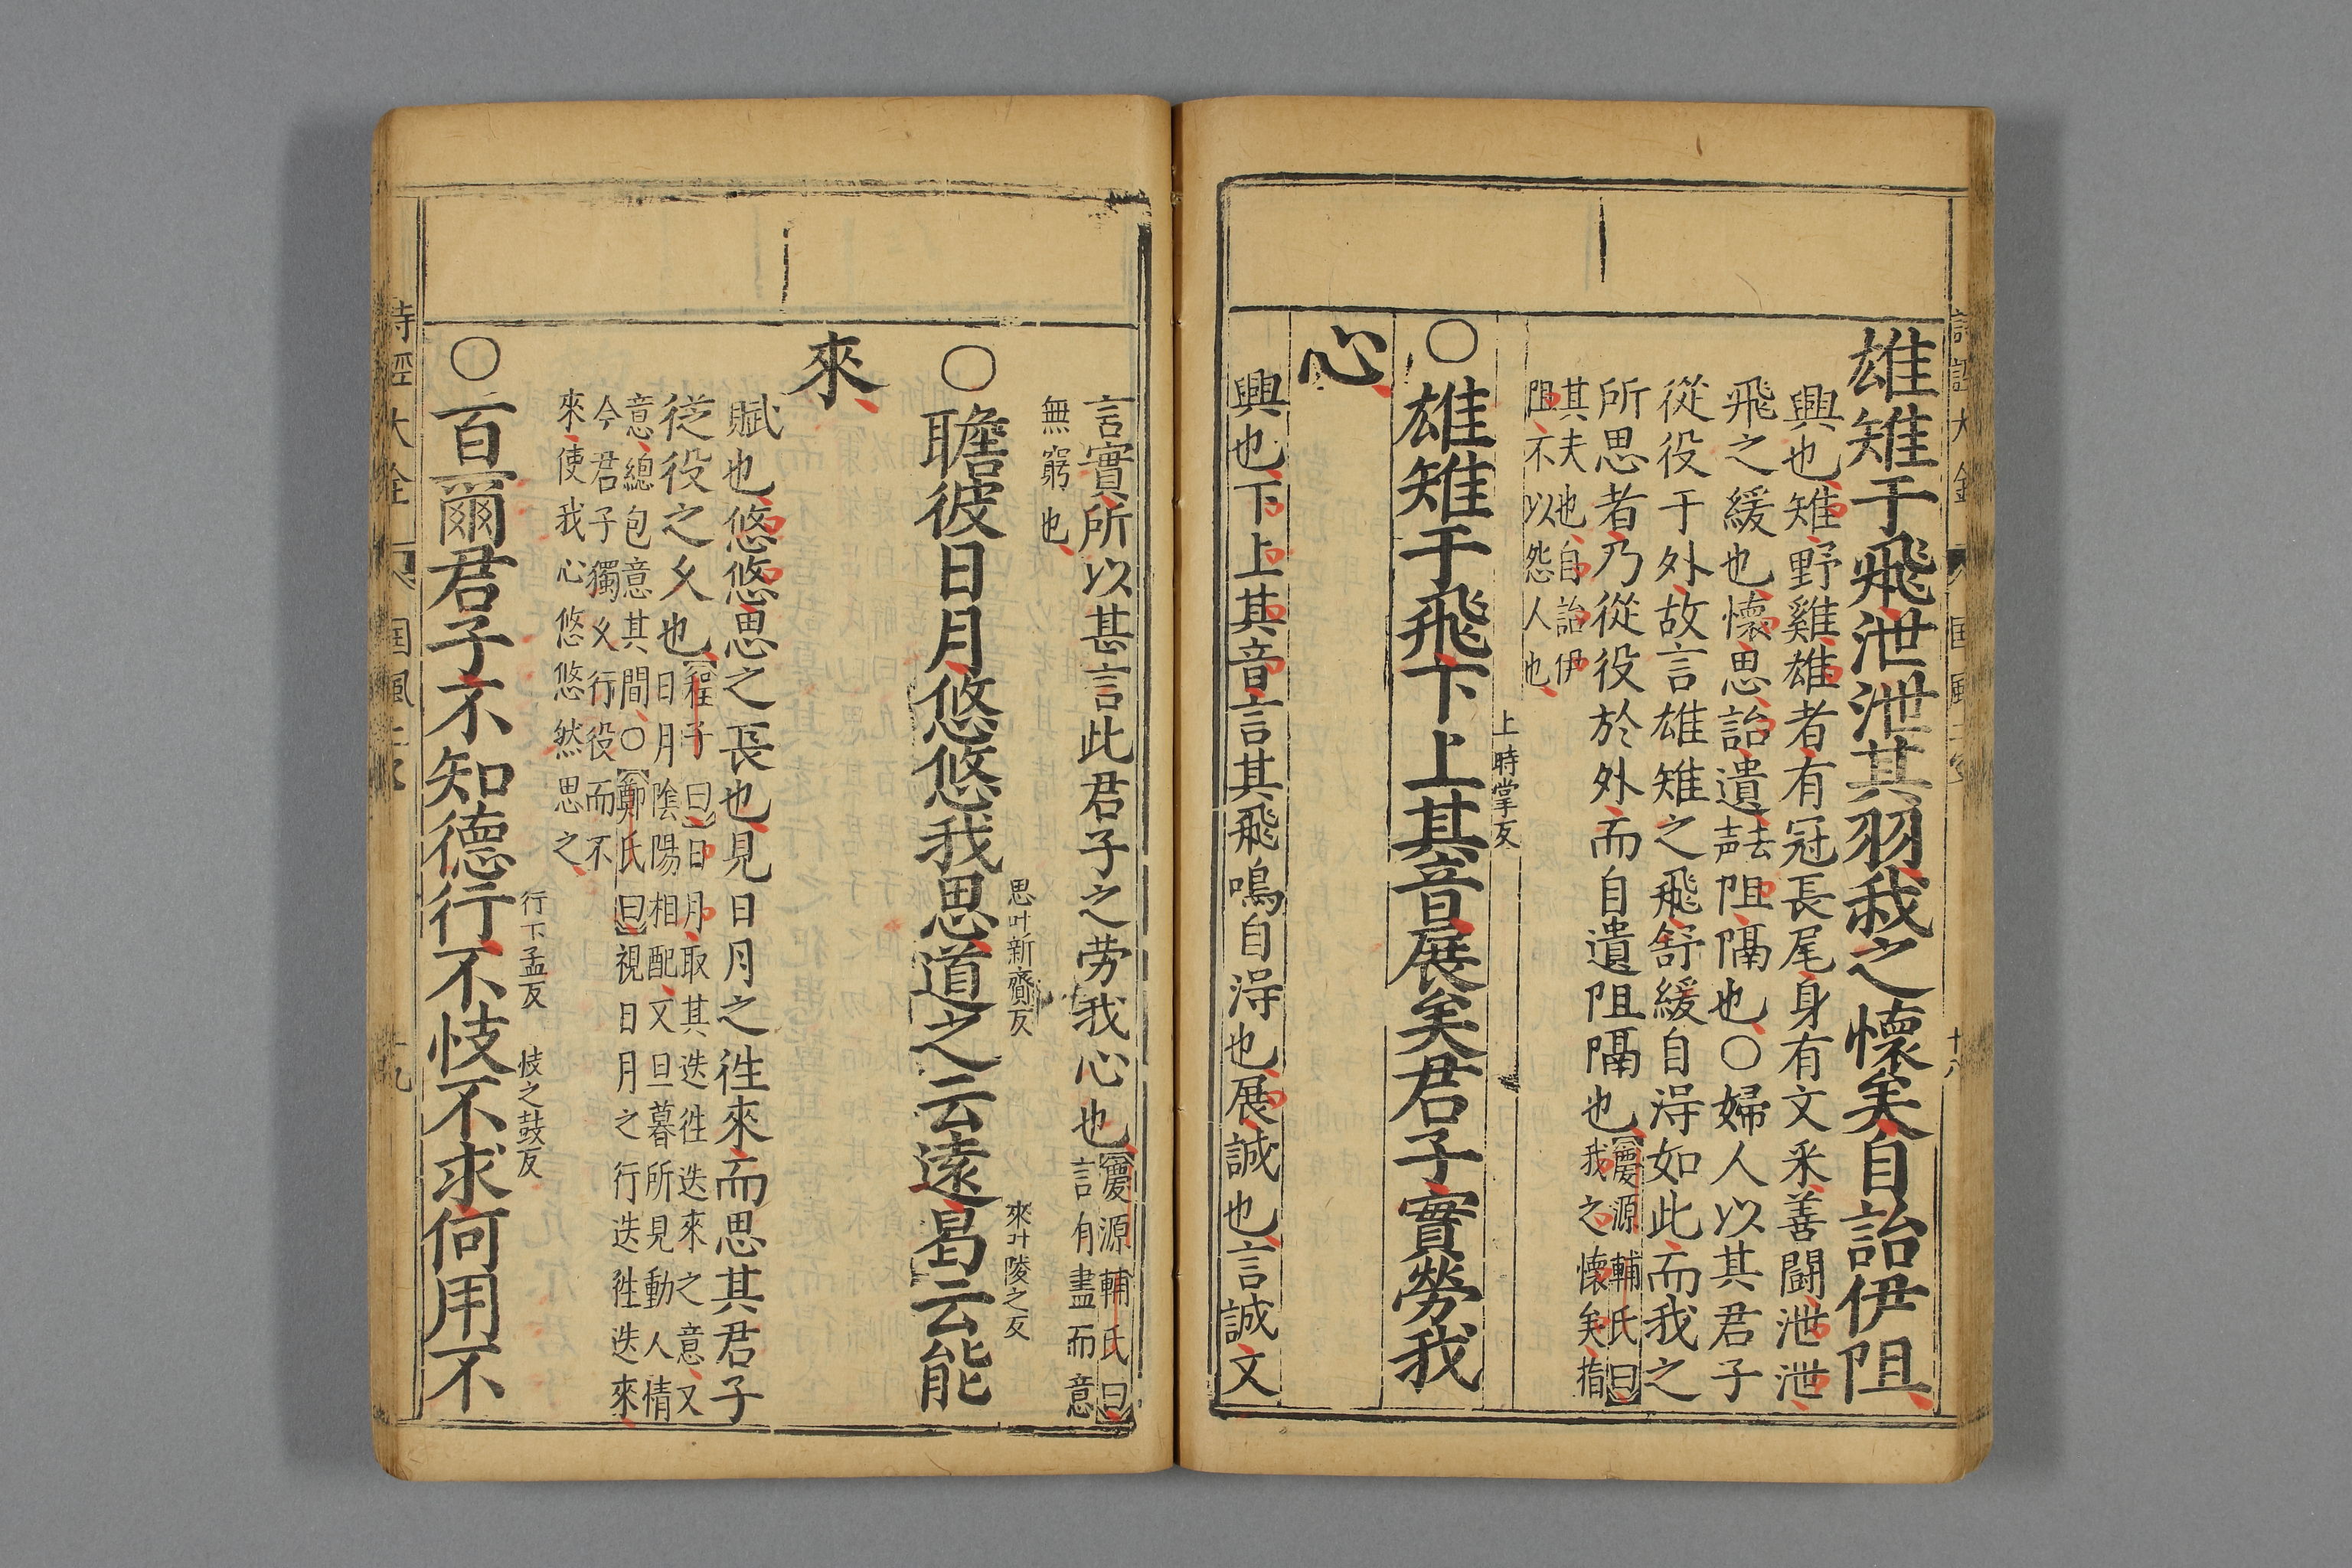 雄雉于飛泄泄其羽我之懷矣自詒伊阻
興也雉野雞雄者有冠長尾身有文采善鬪泄泄
飛之緩也懷思詒遺去声阻隔也○婦人以其君子
從役于外故言雄雉之飛舒緩自淂如此而我之
所思者乃從役於外而自遺阻隔也慶源輔氏曰
我之懷矣指
其夫也自詒伊
阻不以怨人也
上時掌反
○雄雉于飛下上其音展矣君子實勞我
心
興也下上其音言其飛鳴自淂也展誠也言誠又
言實所以甚言此君子之劳我心也慶源輔氏曰
言有盡而意
無窮也
思叶新齎反
來叶陵之反
○瞻彼日月悠悠我思道之云遠曷云能
來
賦也悠悠思之長也見日月之徃來而思其君子
從役之乆也程子曰日月取其迭徃迭來之意又
日月陰陽相配又旦暮所見動人情
意總包意其間○鄭氏曰視日月之行迭徃迭來
今君子獨乆行役而不
來使我心悠悠然思之
行下孟反
忮之豉反
○百爾君子不知德行不忮不求何用不
詩經大全
國風
十九
十八